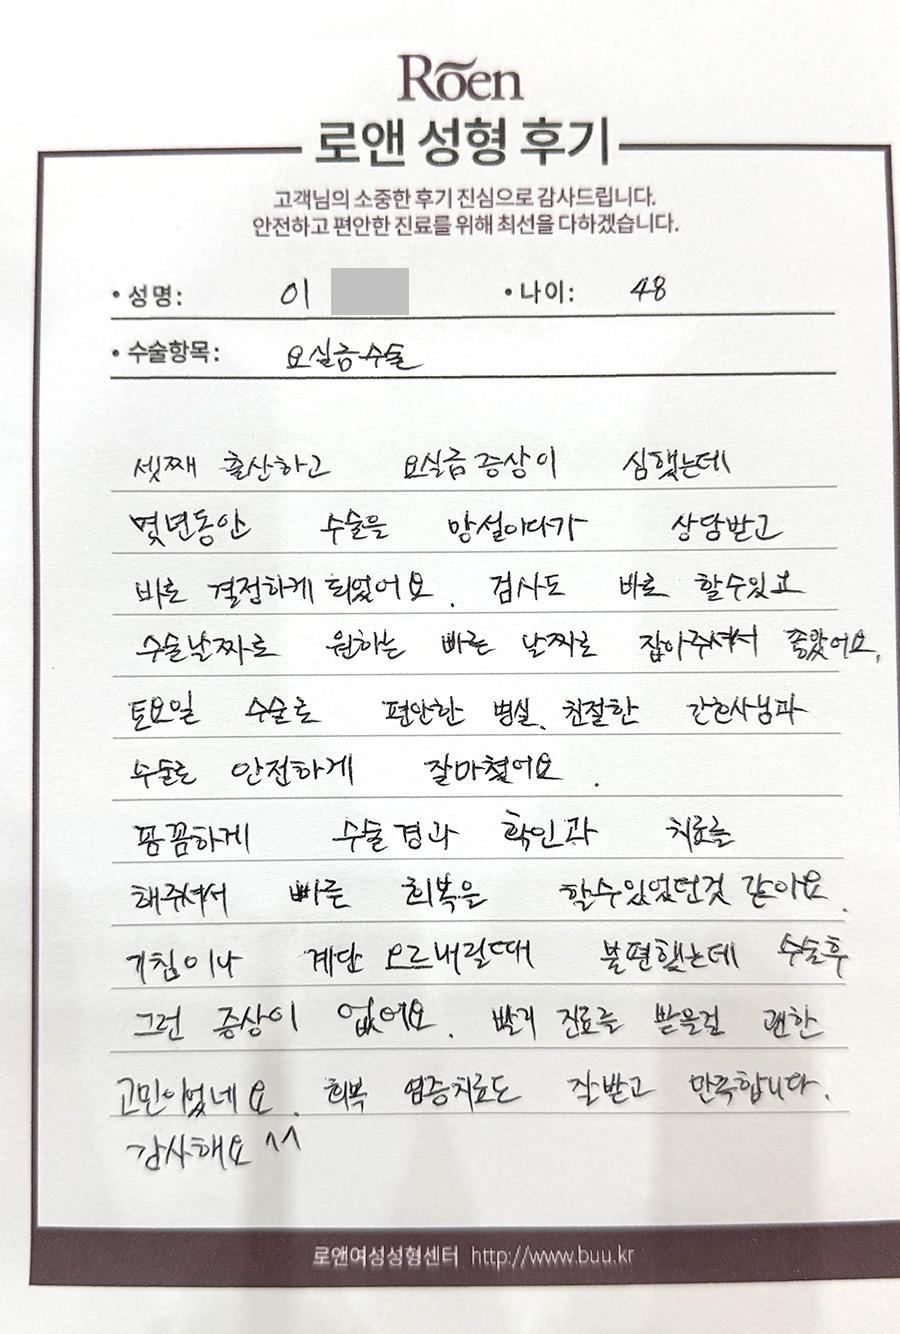 Rōen
로앤 성형 후기
고객님의 소중한 후기 진심으로 감사드립니다.
안전하고 편안한 진료를 위해 최선을 다하겠습니다.
• 성명: 이 • 나이: 48
• 수술항목: 요실금수술
셋째 출산하고 요실금 증상이 심했는데
몇년동안 수술을 망설이다가 상담받고
바로 결정하게 되었어요. 검사도 바로 할수있고
수술날짜로 원하는 빠른 날짜로 잡아주셔서 좋았어요.
토요일 수술로 편안한 병실, 친절한 간호사님과
수술로 안전하게 잘마쳤어요.
꼼꼼하게 수술경과 확인과 치료를
해주셔서 빠른 회복을 할수있었던것 같아요.
기침이나 계단 오르내릴때 불편했는데 수술후
그런 증상이 없어요. 빨리 진료를 받을걸 괜한
고민이었네요. 회복 염증치료도 잘받고 만족합니다.
감사해요 ^^
로앤여성성형센터 http://www.buu.kr